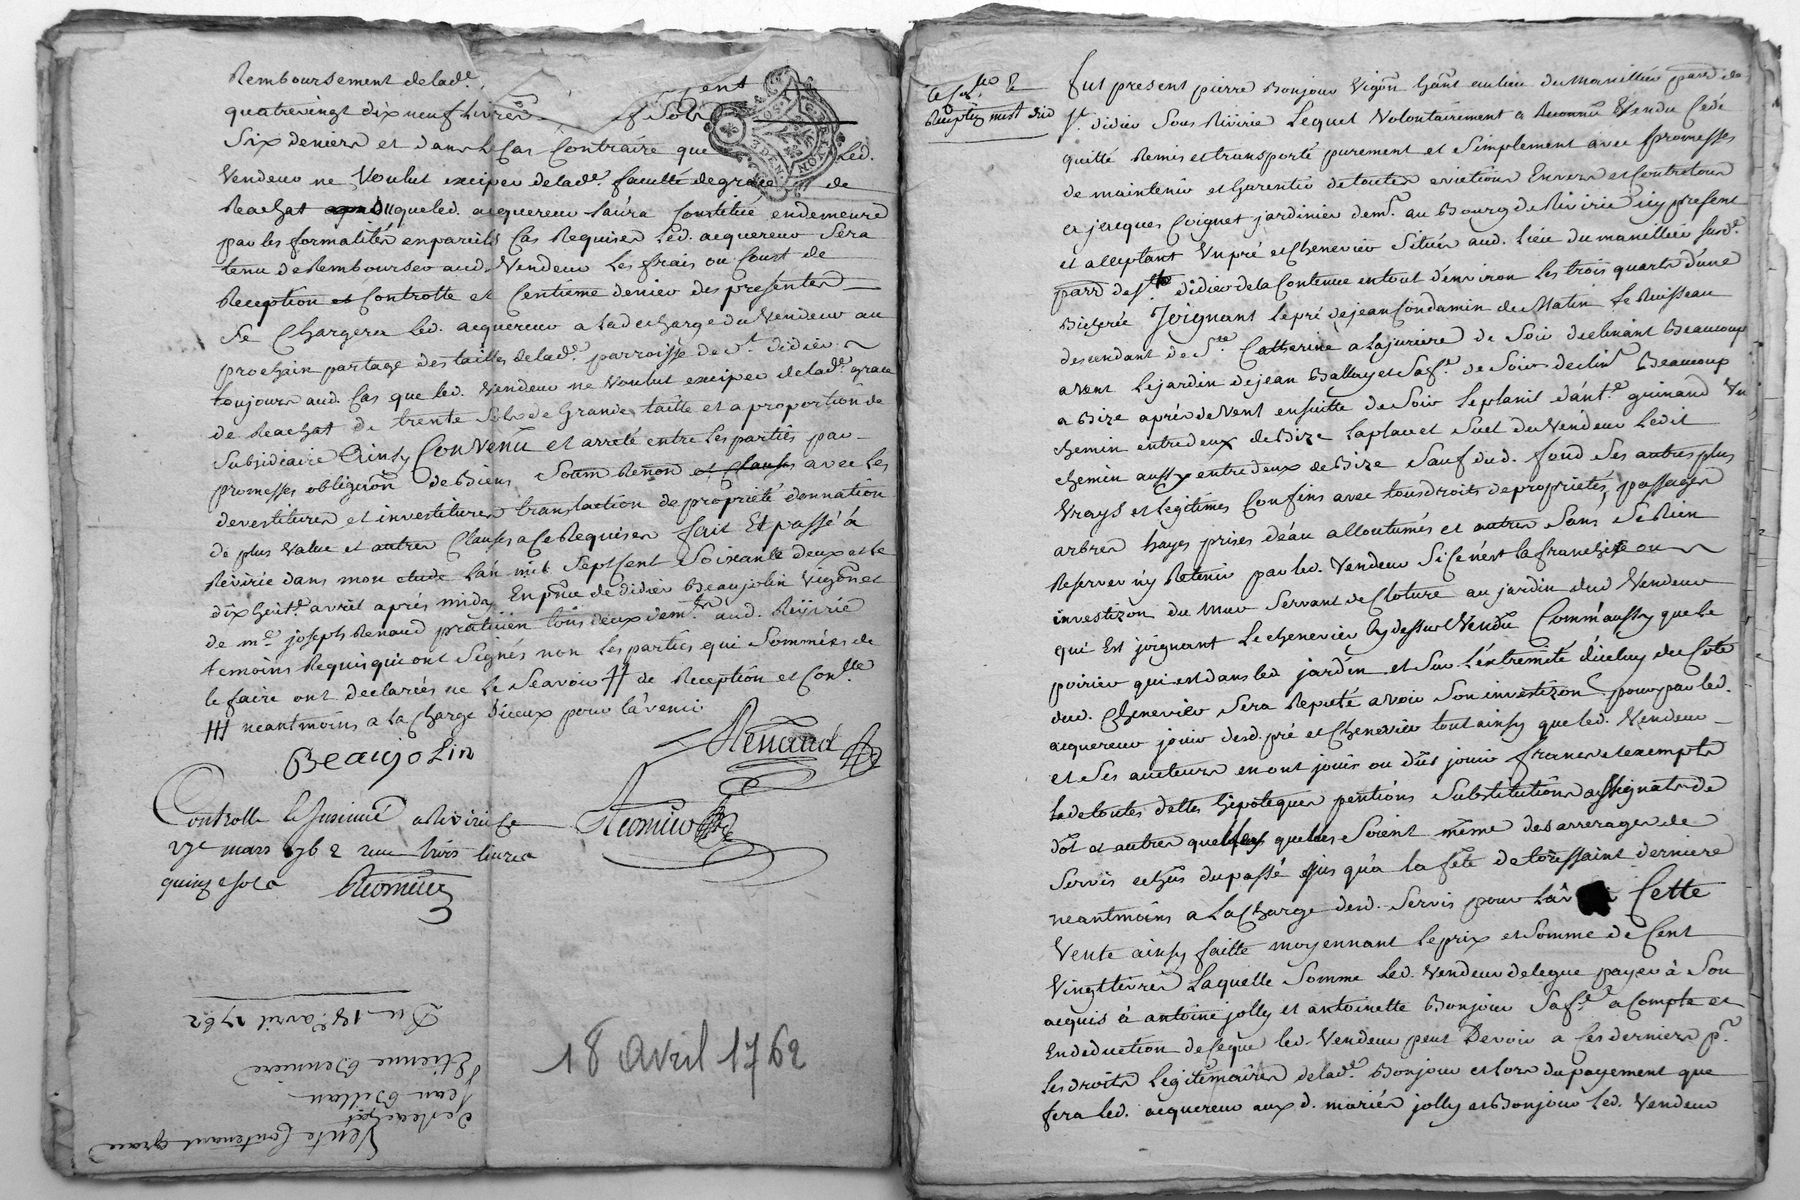 Remboursement de lad.e
quatrevingt dix neuf livres sols
Six deniers et dans le Cas Contraire que Led.
Vendeur ne Voulut exciper de lad.e faculté de grace de
Reachat que led. acquereur l'aura Constitué en demeure
par les formalités en pareils Cas Requises Led. acquereur Sera
tenu de Rembourser aud. Vendeur Les frais ou Coust de
Reception et Controlle et Centieme denier des presentes
Se Chargera Led. acquereur a la decharge du Vendeur au
prochain partage des tailles de lad.e parroisse de St. didier
toujours aud. Cas que led. Vendeur ne Voulut exciper de lad.e grace
de Reachat de trente Sols de Grande taille et a proportion de
Subsidiaire Ainsy Convenu et arreté entre Les parties par
promesses obligaôn de biens Soum Renon et Clauses avec les
devestitures et investitures translaction de propriété donnation
de plus Value et autres Clauses a Ce Requises fait Et passé à
Riverie dans mon etude L'an mil Sept Cent Soixante deux et le
dix huit.e avril aprés midy En pnce de didier Beaujolin Vigôn et
de m.e joseph Renaud praticien tous deux dem.ts aud. Riverie
temoins Requis qui ont Signés non Les parties qui Sommées de
le faire ont declarées ne Le Scavoir # de Reception et Con.lle
## neantmoins a La Charge d'iceux pour l'avenir
Beaujolin
Renaud
Controllé & Insinué a Riverie Ce
mars 1762 reçu trois livres
quinze sols
18 Avril 1762
Du 18.e avril 1762
Etienne
Jean
de Reachat
Vente Contenant grace
Reception n'est due
fut present pierre Bonjour Vigôn hânt au lieu du Manillier parr de
St. didier Sous Riverie Lequel Volontairement a Reconnu Vendu Cedé
quitté Remis et transporté purement et Simplement avec promesses
de maintenir et Garentir de toutes evictions Envers et Contre tous
a jacques Coignet jardinier dem.t au Bourg de Riverie icy present
et acceptant Un pré et Chenevier Situés aud. Lieu du manillier susd.e
parr de St. didier de la Contenue en tout d'environ Les trois quarts d'une
Bicherée Joignant Le pré de jean Condamin de Matin Le Ruisseau
descendant de Ste. Catherine a Lajuriere de Soir declinant Beaucoup
a vent Le jardin de jean Ballay et Saf.e de Soir declint Beaucoup
a Bize aprés de Vent ensuitte de Soir Le plasit d'ant.e guinand Un
Chemin entredeux de Bize La place et Suel du Vendeur Ledit
Chemin aussy entredeux de Bize Sauf dud. fond Ses autres plus
Vrays et Legitimes Confins avec tous droits de proprietés, passages
arbres hayes prises d'eau accoutumés et autres Sans Se Rien
Reserver n'y Retenir par led. Vendeur Si Ce n'est la franchise ou
investizon du mur Servant de Cloture au jardin dud. Vendeur
qui Est joignant Le Chenevier Cy dessus Vendu Comm'aussy que Le
poirier qui est dans led jardin et Sur L'extremité d'icluy du Coté
dud. Chenevier Sera Reputé avoir Son investizon pour par led.
acquereur jouir desd. pré et Chenevier tout ainsy que led. Vendeur
et Ses autheurs en ont jouis ou dûs jouir francs et exempts
de toutes dettes hipoteques pentions Substitutions assignats de
dôt et autres quelles quelles Soient même des arrerages de
Servis echus du passé jusqu'a la fête de toussaint derniere
neantmoins a La Charge desd. Servis pour l'av Cette
Vente ainsy faitte moyennant Le prix et Somme de Cent
Vingt livres Laquelle Somme Led. Vendeur delegue payer à Son
acquis à antoine jolly et antoinette Bonjour Saf.e a Compte et
En deduction de Ceque led. Vendeur peut Devoir a Ces derniers p.r
Les droits Legitimaires de lad.e Bonjour et lors du payement que
fera led. acquereur aux d. mariés jolly et Bonjour Led. Vendeur